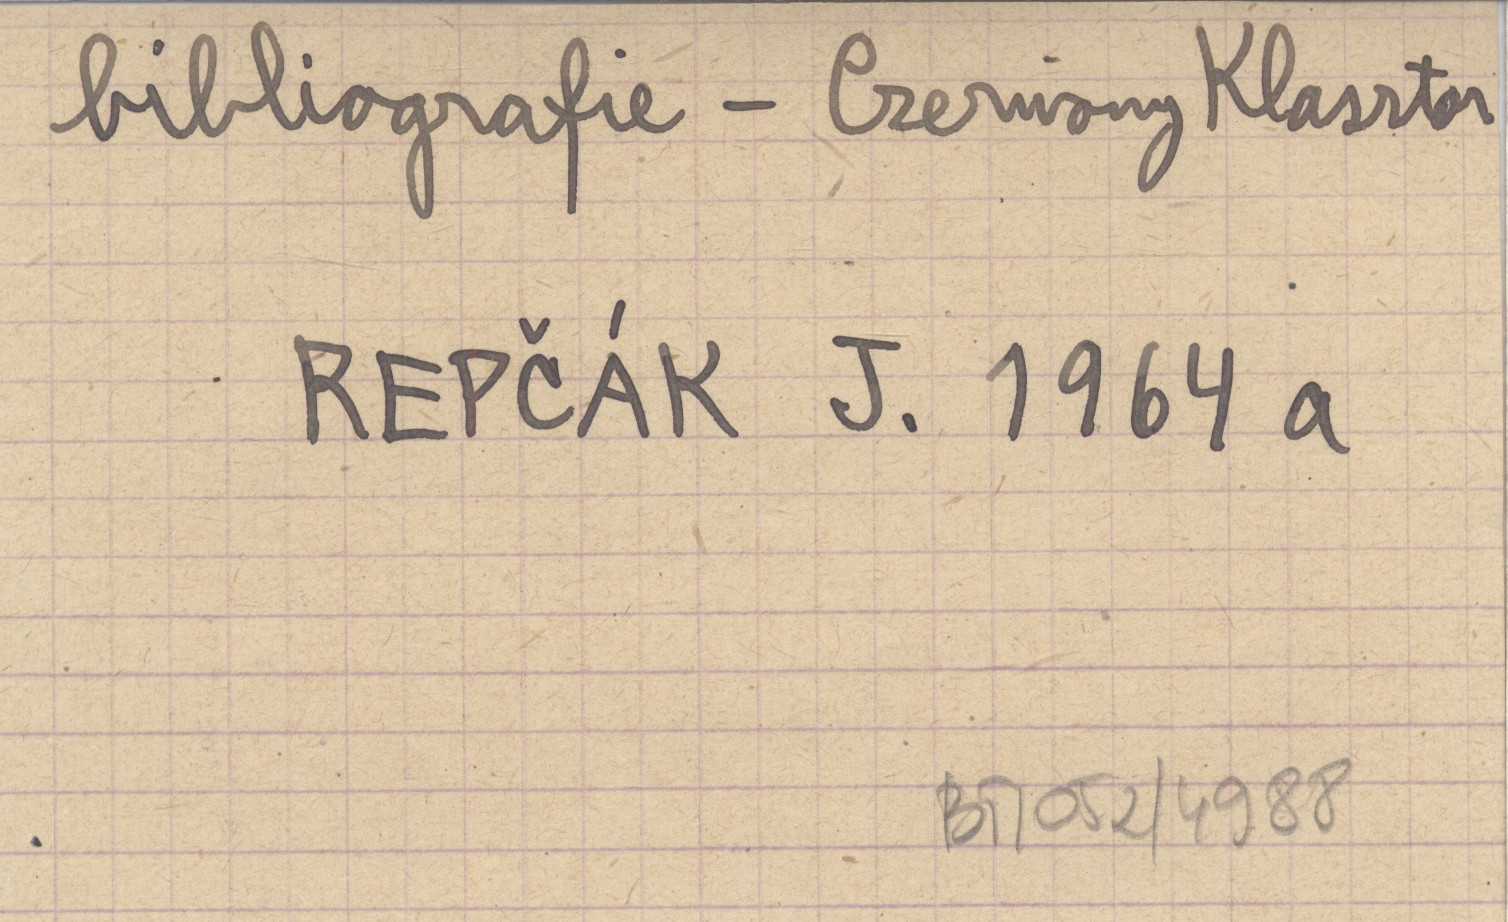 bibliografie - Czerwony Klasztor
REPČÁK J. 1964 a
052/4988